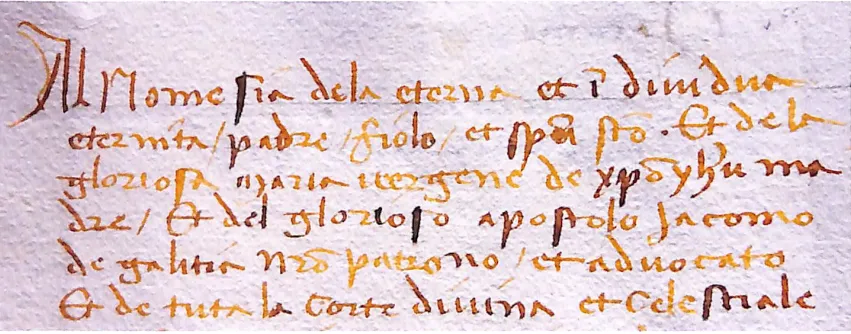 Al Nome sia dela eterna et ī dividua
eternita / padre / fiolo / et spū stō . Et dela
gloriosa maria vergene de xpō yhū ma
dre / Et del glorioso apostolo Jacomo
de galitia nrō patrono / et advocato
Et de tuta la Corte divina et Celestiale